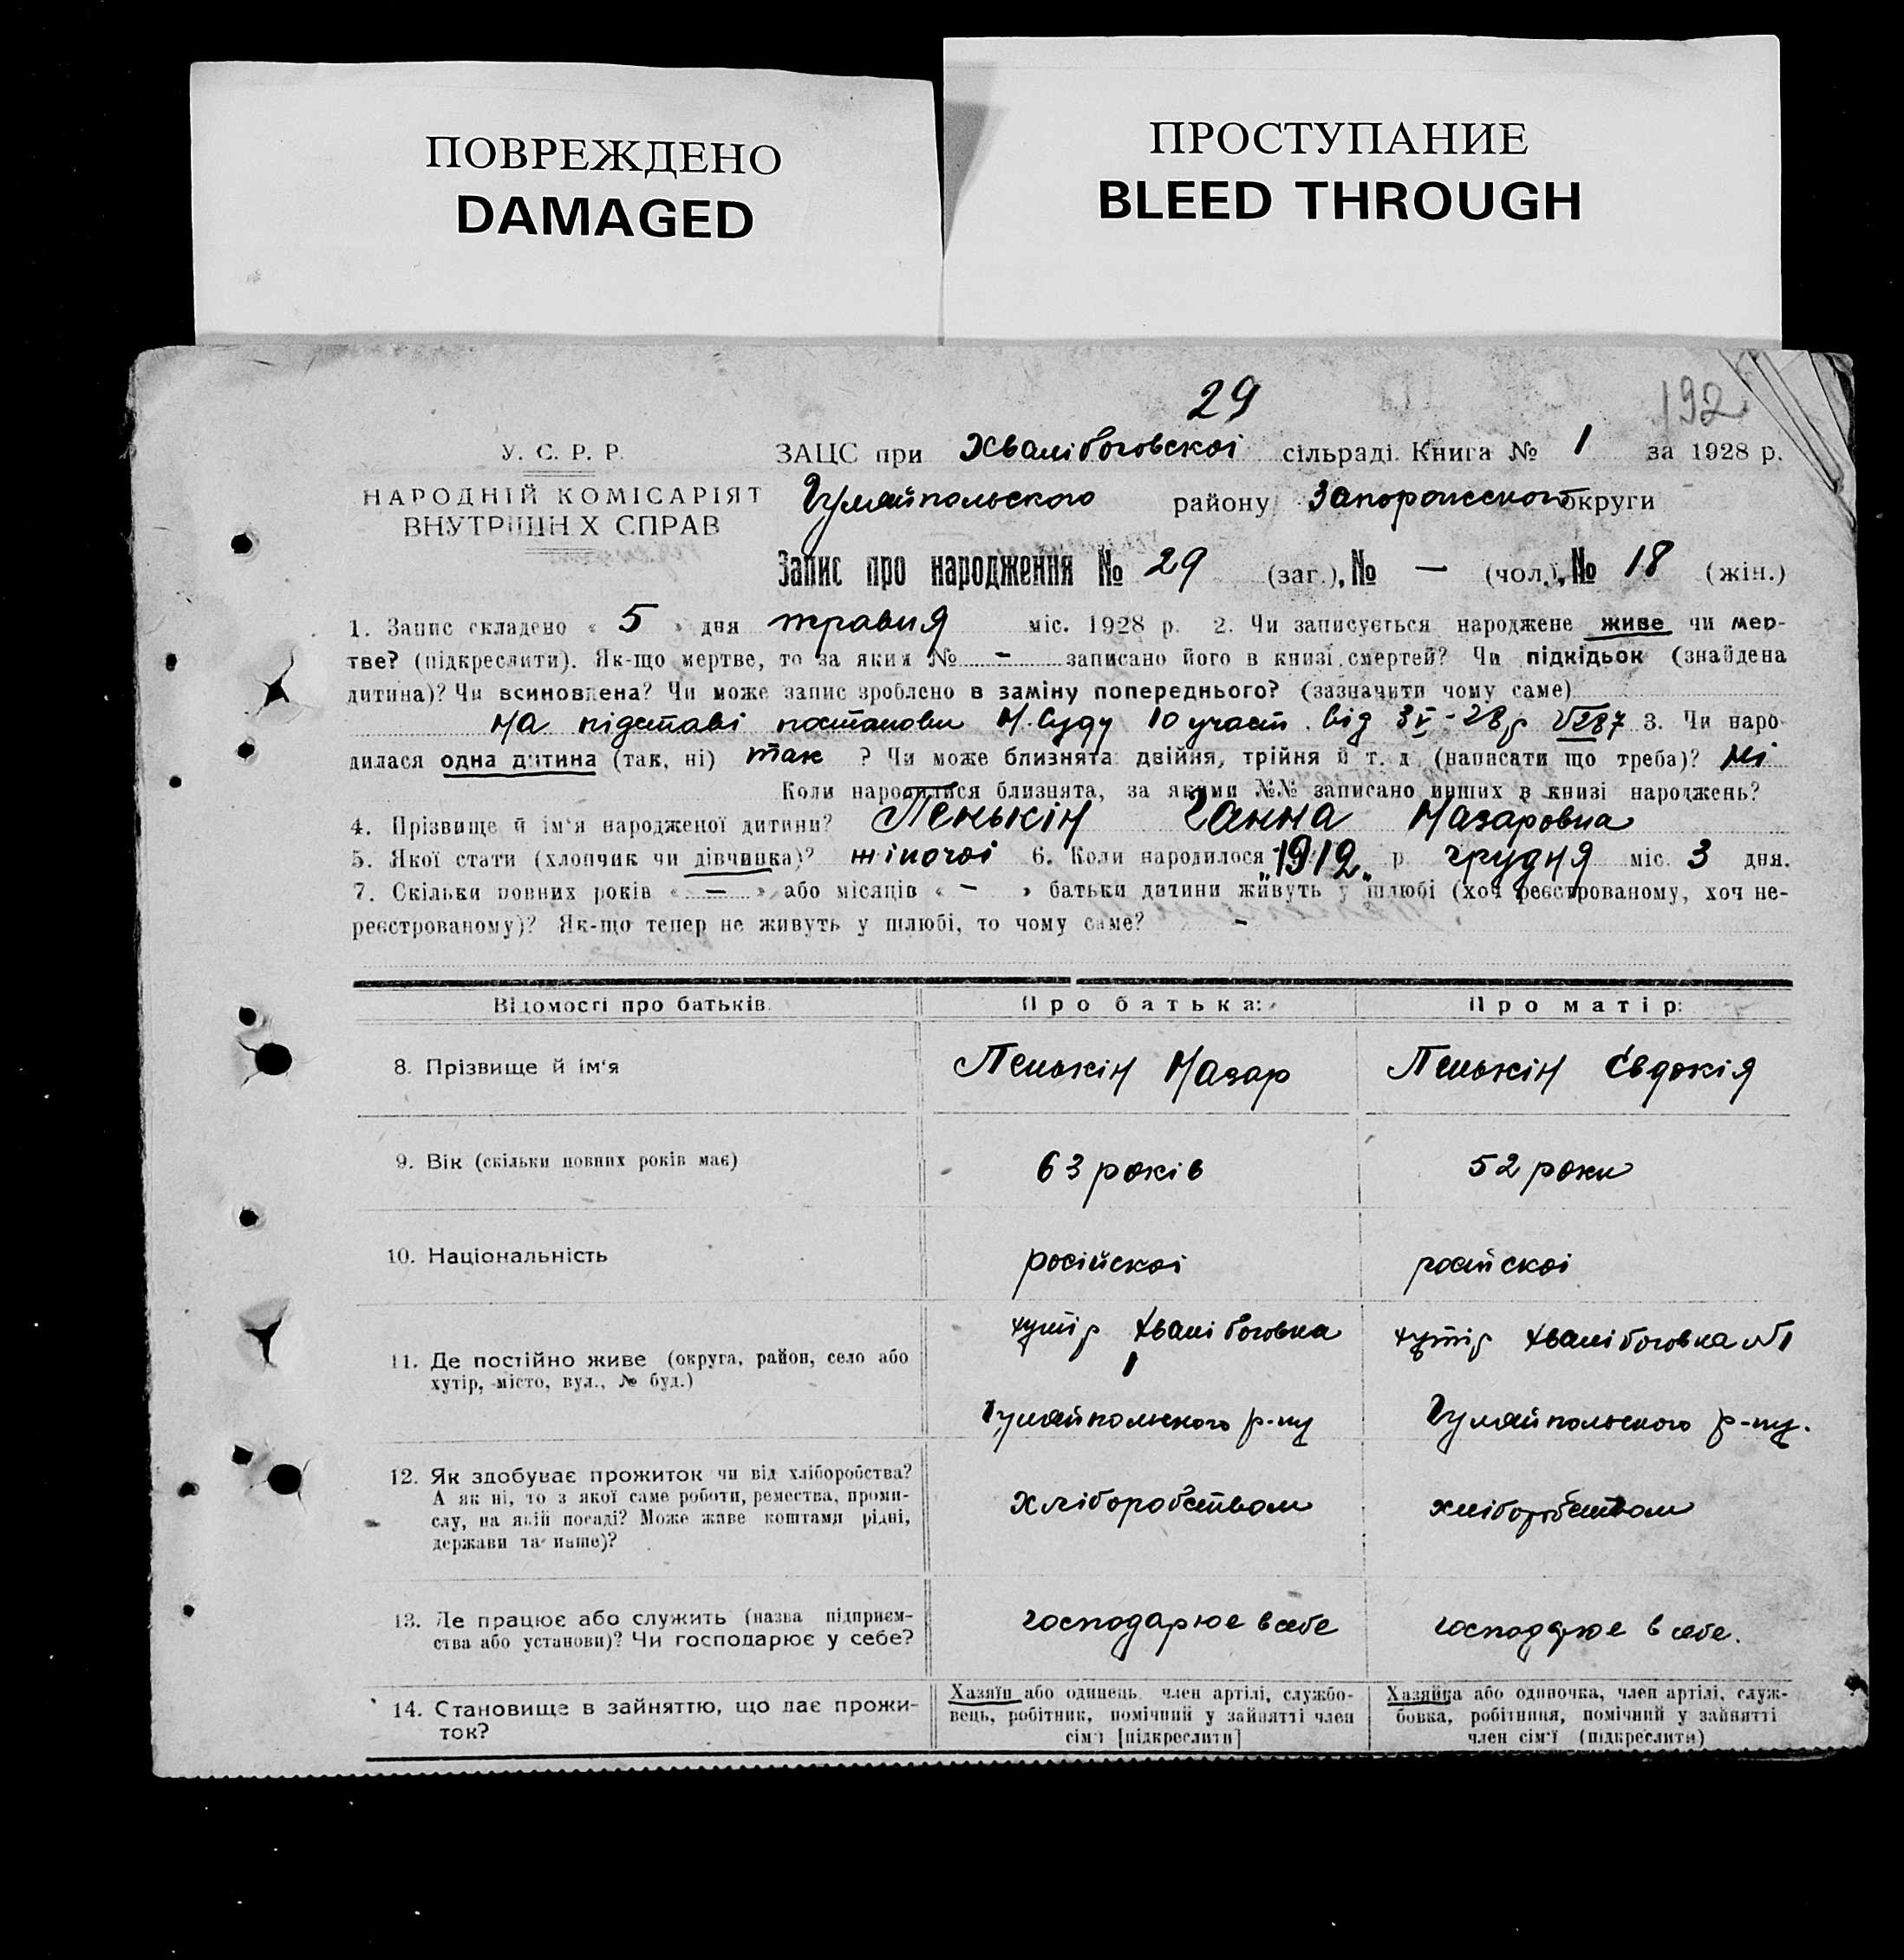 ПОВРЕЖДЕНО
DAMAGED
ПРОСТУПАНИЕ
BLEED THROUGH
29
192
У. С. Р. Р.
НАРОДНІЙ КОМІСАРІЯТ
ВНУТРІШН Х СПРАВ
ЗАЦС при Хвалібоговскоі сільраді. Книга № 1 за 1928 р.
Гуляйпольского району Запорожского округи
Запис про народження № 29 (заг.), № — (чол.), № 18 (жін.)
1. Запис складено « 5 » дня травня міс. 1928 р. 2. Чи записується народжене живе чи мер-
тве? (підкреслити). Як-що мертве, то за яким № – записано його в книзі смертей? Чи підкідьок (знайдена
дитина)? Чи всиновлена? Чи може запис зроблено в заміну попереднього? (зазначити чому саме)
на підставі постанови Н. Суду 10 участ. від 3/V-28р 3. Чи наро
дилася одна дитина (так, ні) так ? Чи може близнята: двійня, трійня й т. д. (написати що треба)? ні
Коли народилися близнята, за якими №№ записано инших в книзі народжень?
4. Прізвище й ім'я народженої дитини? Пенькін Ганна Назаровна
5. Якої стати (хлопчик чи дівчинка)? жіночоі 6. Коли народилося „1912„ р грудня міс. 3 дня.
7. Скільки повних років « — » або місяців « – » батьки дитини живуть у шлюбі (хоч реєстрованому, хоч не-
реєстрованому)? Як-що тепер не живуть у шлюбі, то чому саме? –
Відомості про батьків. Про батька: Про матір:
8. Прізвище й ім'я Пенькін Назар Пенькін Євдокія
9. Вік (скільки повних років має) 63 років 52 роки
10. Національність російскоі російскоі
11. Де постійно живе (округа, район, село або
хутір, місто, вул., № буд.)
хутір Хвалібоговка 1 хутір Хвалібоговка №1
Гуляйпольского р-ну Гуляйпольского р-ну.
12. Як здобуває прожиток чи від хліборобства?
А як ні, то з якої саме роботи, ремества, проми-
слу, на якій посаді? Може живе коштами рідні,
держави та инше)?
хліборобством хліборобством
13. Де працює або служить (назва підприєм-
ства або установи)? Чи господарює у себе?
господарює в себе господарює в себе.
14. Становище в зайняттю, що дає прожи-
ток?
Хазяїн або одинець, член артілі, службо-
вець, робітник, помічний у зайнятті член
сім'ї [підкреслити]
Хазяйка або одиночка, член артілі, служ-
бовка, робітниця, помічний у зайнятті
член сім'ї (підкреслити)